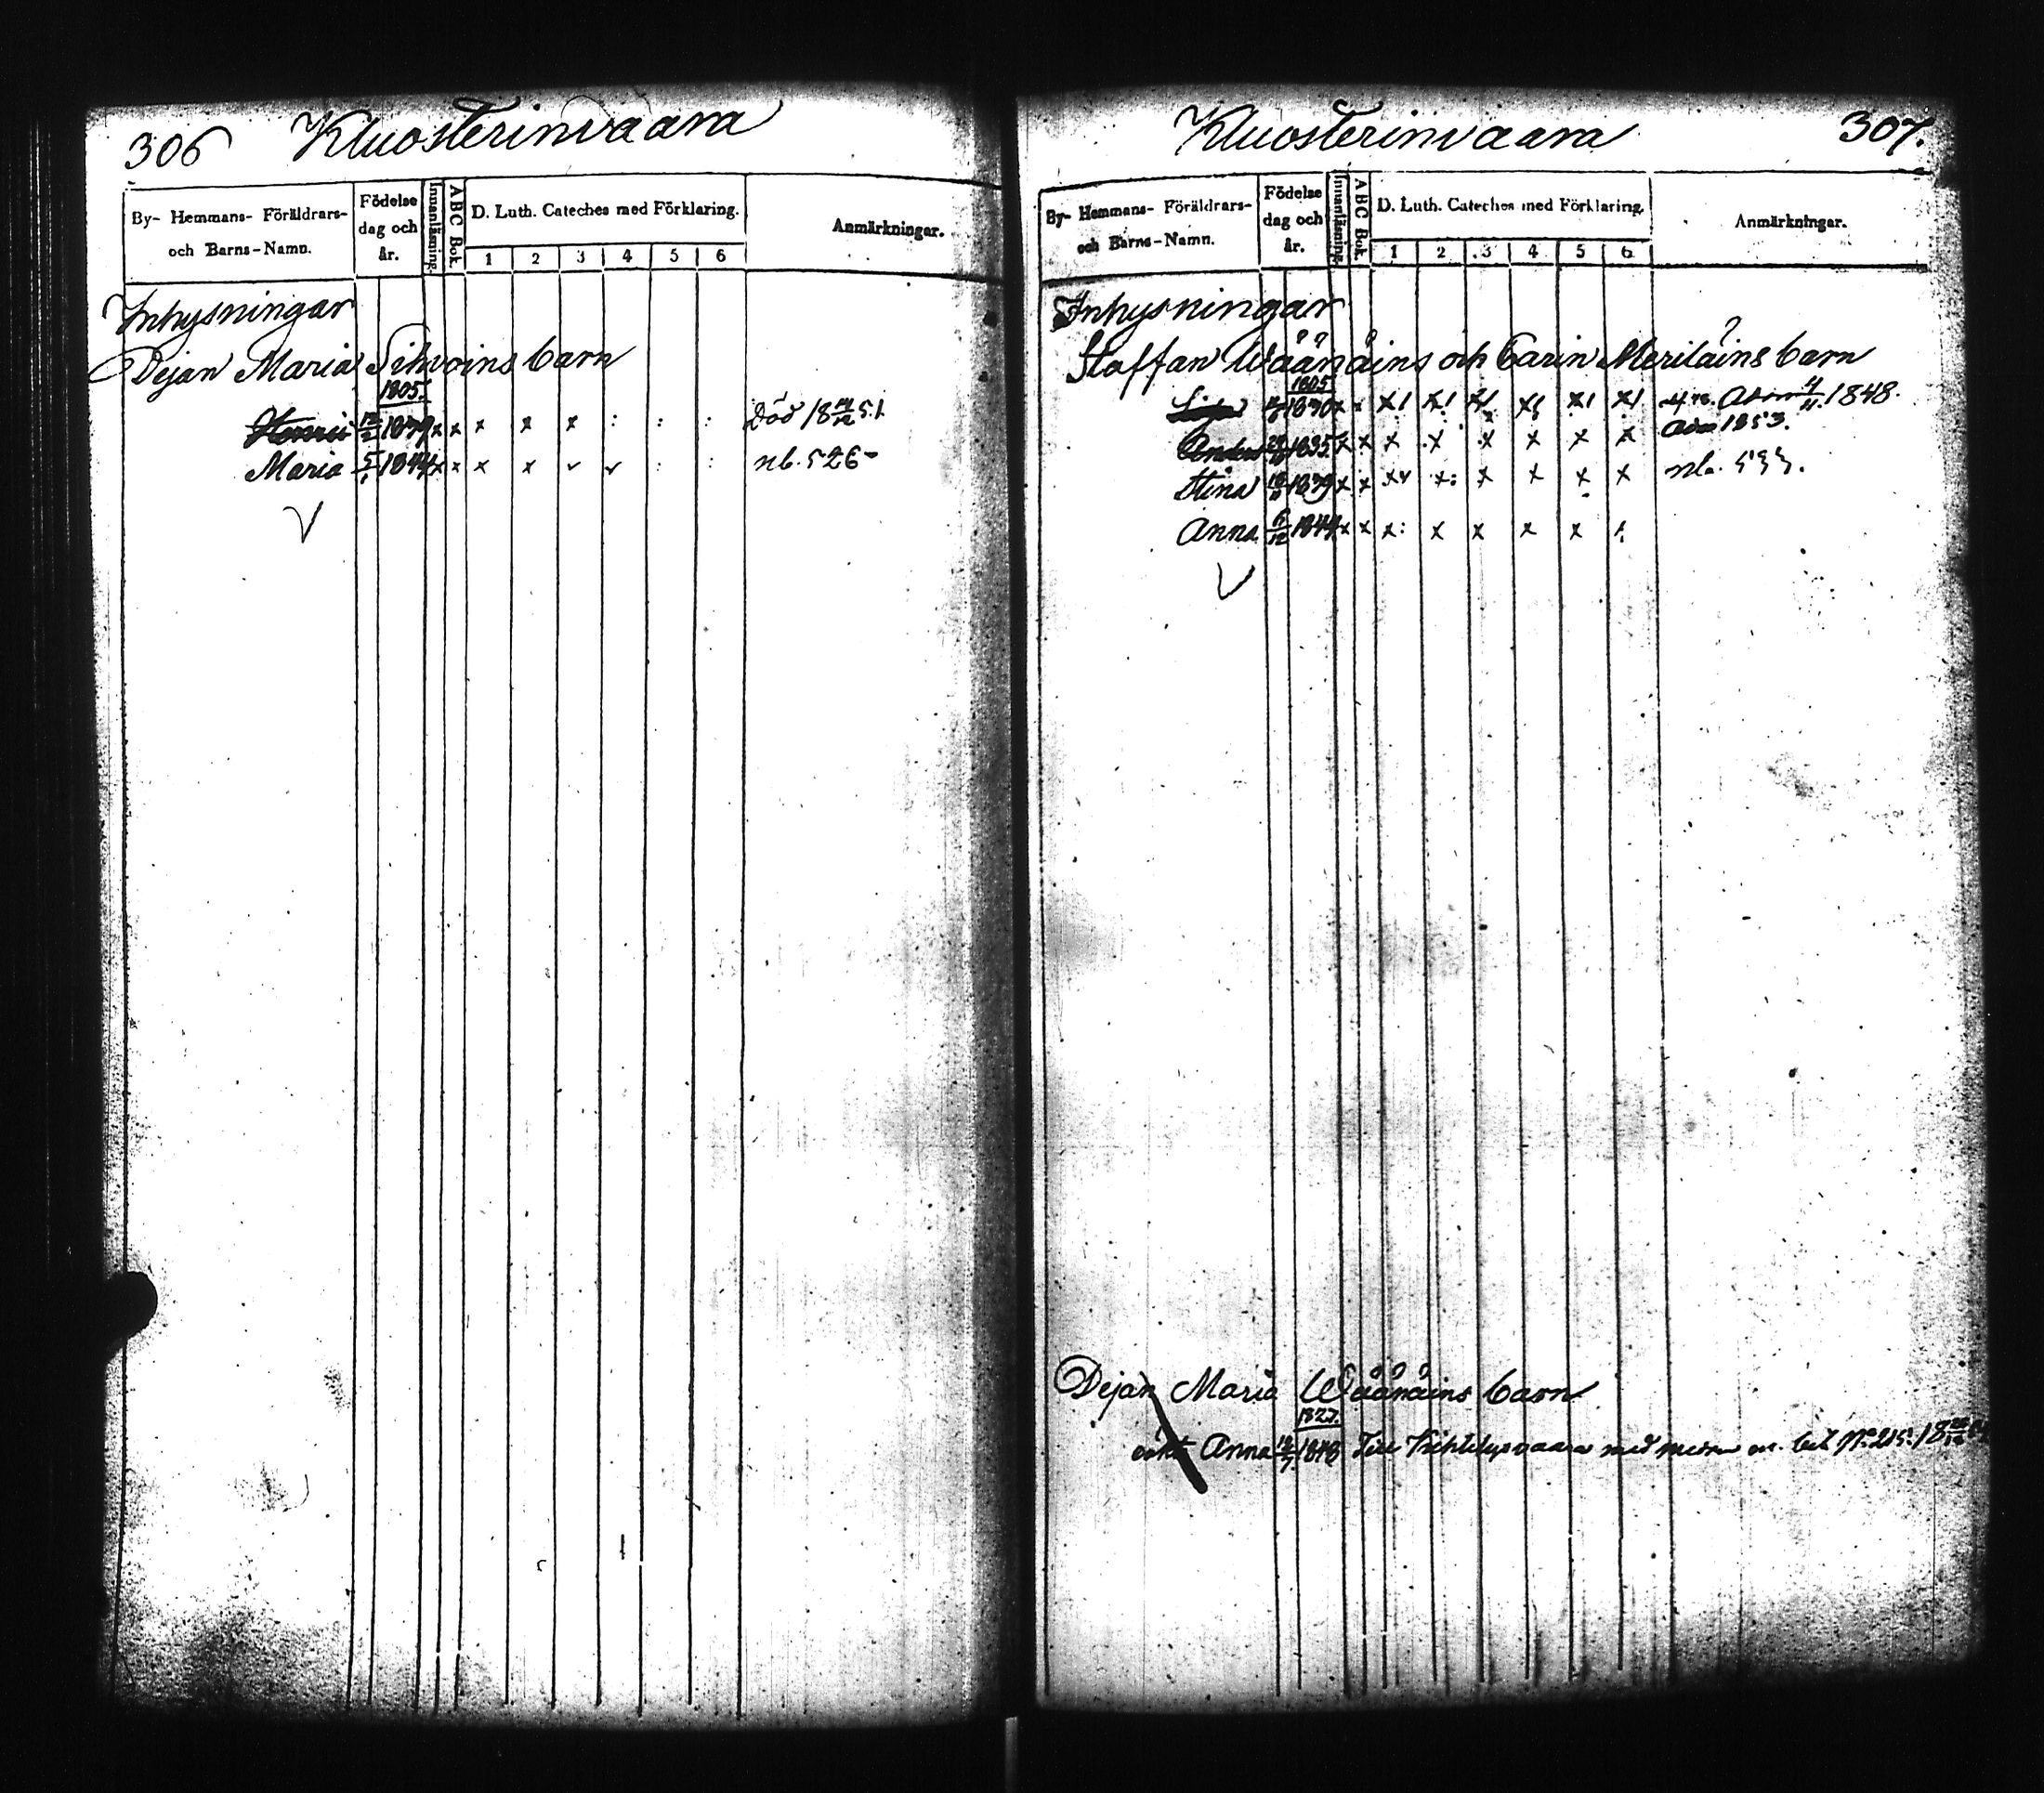 306 Kluosterinvaara
By- Hemmans- Föräldrars- och Barns-Namn. Födelse dag och år. Innanläsning. ABC Bok. D. Luth. Cateches med Förklaring. Anmärkningar.
1 2 3 4 5 6
Inhysningar
Dejan Maria Sihvoins barn
1805.
Henric 1839 x x x x x : : : Död 18 51
Maria 5/1 1844 x x x x v v : : nb. 526
V
Kluosterinvaara 307.
By- Hemmans- Föräldrars- och Barns-Namn. Födelse dag och år. Innanläsning. ABC Bok. D. Luth. Cateches med Förklaring. Anmärkningar.
1 2 3 4 5 6
Inhysningar
Staffan Wäänäins och Carin Meriläins barn
1805
1830 x x x x x x x x 1848.
Anders 1835 x x x x x x x x adm 1853.
Stina 1839 x x x x x x x x nb. 533.
Anna 6/12 1844 x x x: x x x x
V
Dejan Maria Wäänäins barn
1827.
oäkt Anna 1848 med No 215. 18